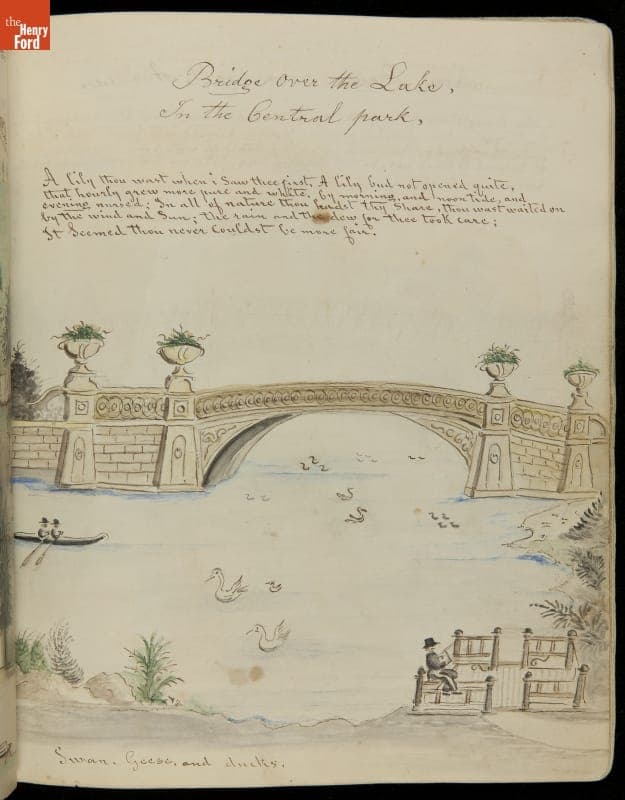 the
Henry
Ford
Bridge over the Lake,
In the Central park,
A lily thou wast when i Saw thee first, A lily bud not opened quite,
that hourly grew more pure and white, by morning, and noon tide, and
evening nursed: In all of nature thou hadst thy Share, thou wast waited on
by the wind and Sun; the rain and the dew for thee took care;
It Seemed thou never Couldst be more fair.
Swan. Geese, and ducks.